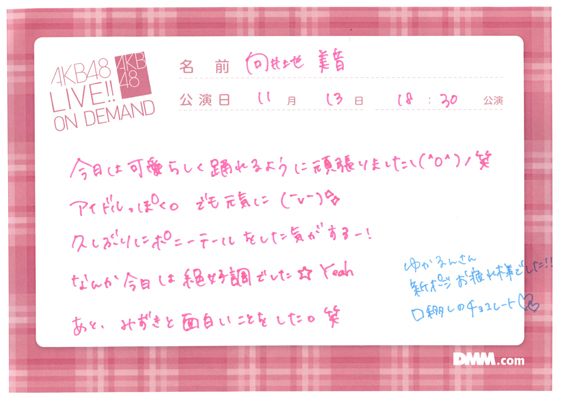 AKB48
LIVE!!
ON DEMAND
AKB
48
名前 向井地 美音
公演日 11月 13日 18:30 公演
今日は可愛らしく踊れるように頑張りました\(^o^)/笑
アイドルっぽく。でも元気に(-v-)☆
久しぶりにポニーテールをした気がするー!
なんか今日は絶好調でした☆Yeah
あと、みずきと面白いことをした。笑
ゆかるんさん
新ポジお疲れ様でした!!
口移しのチョコレート♡♡
DMM.com